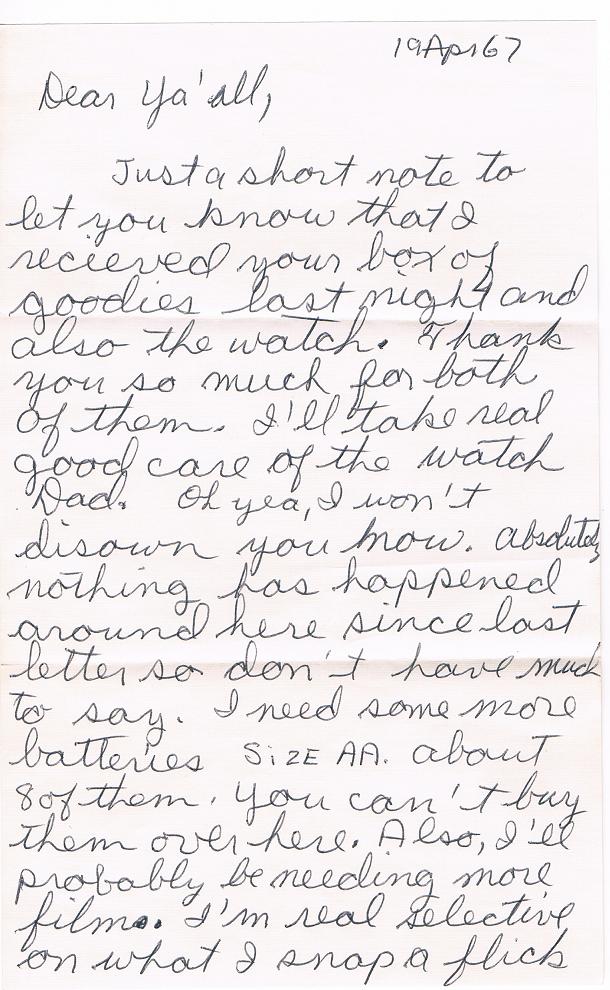 19 Apr 67
Dear Ya'all,
Just a short note to
let you know that I
recieved your box of
goodies last night and
also the watch. Thank
you so much for both
of them. I'll take real
good care of the watch
Dad. Oh yea, I won't
disown you Mow. Absolutely
nothing has happened
around here since last
letter so don't have much
to say. I need some more
batteries SIZE AA. about
8 of them. You can't buy
them over here. Also, I'll
probably be needing more
film. I'm real selective
on what I snap a flick